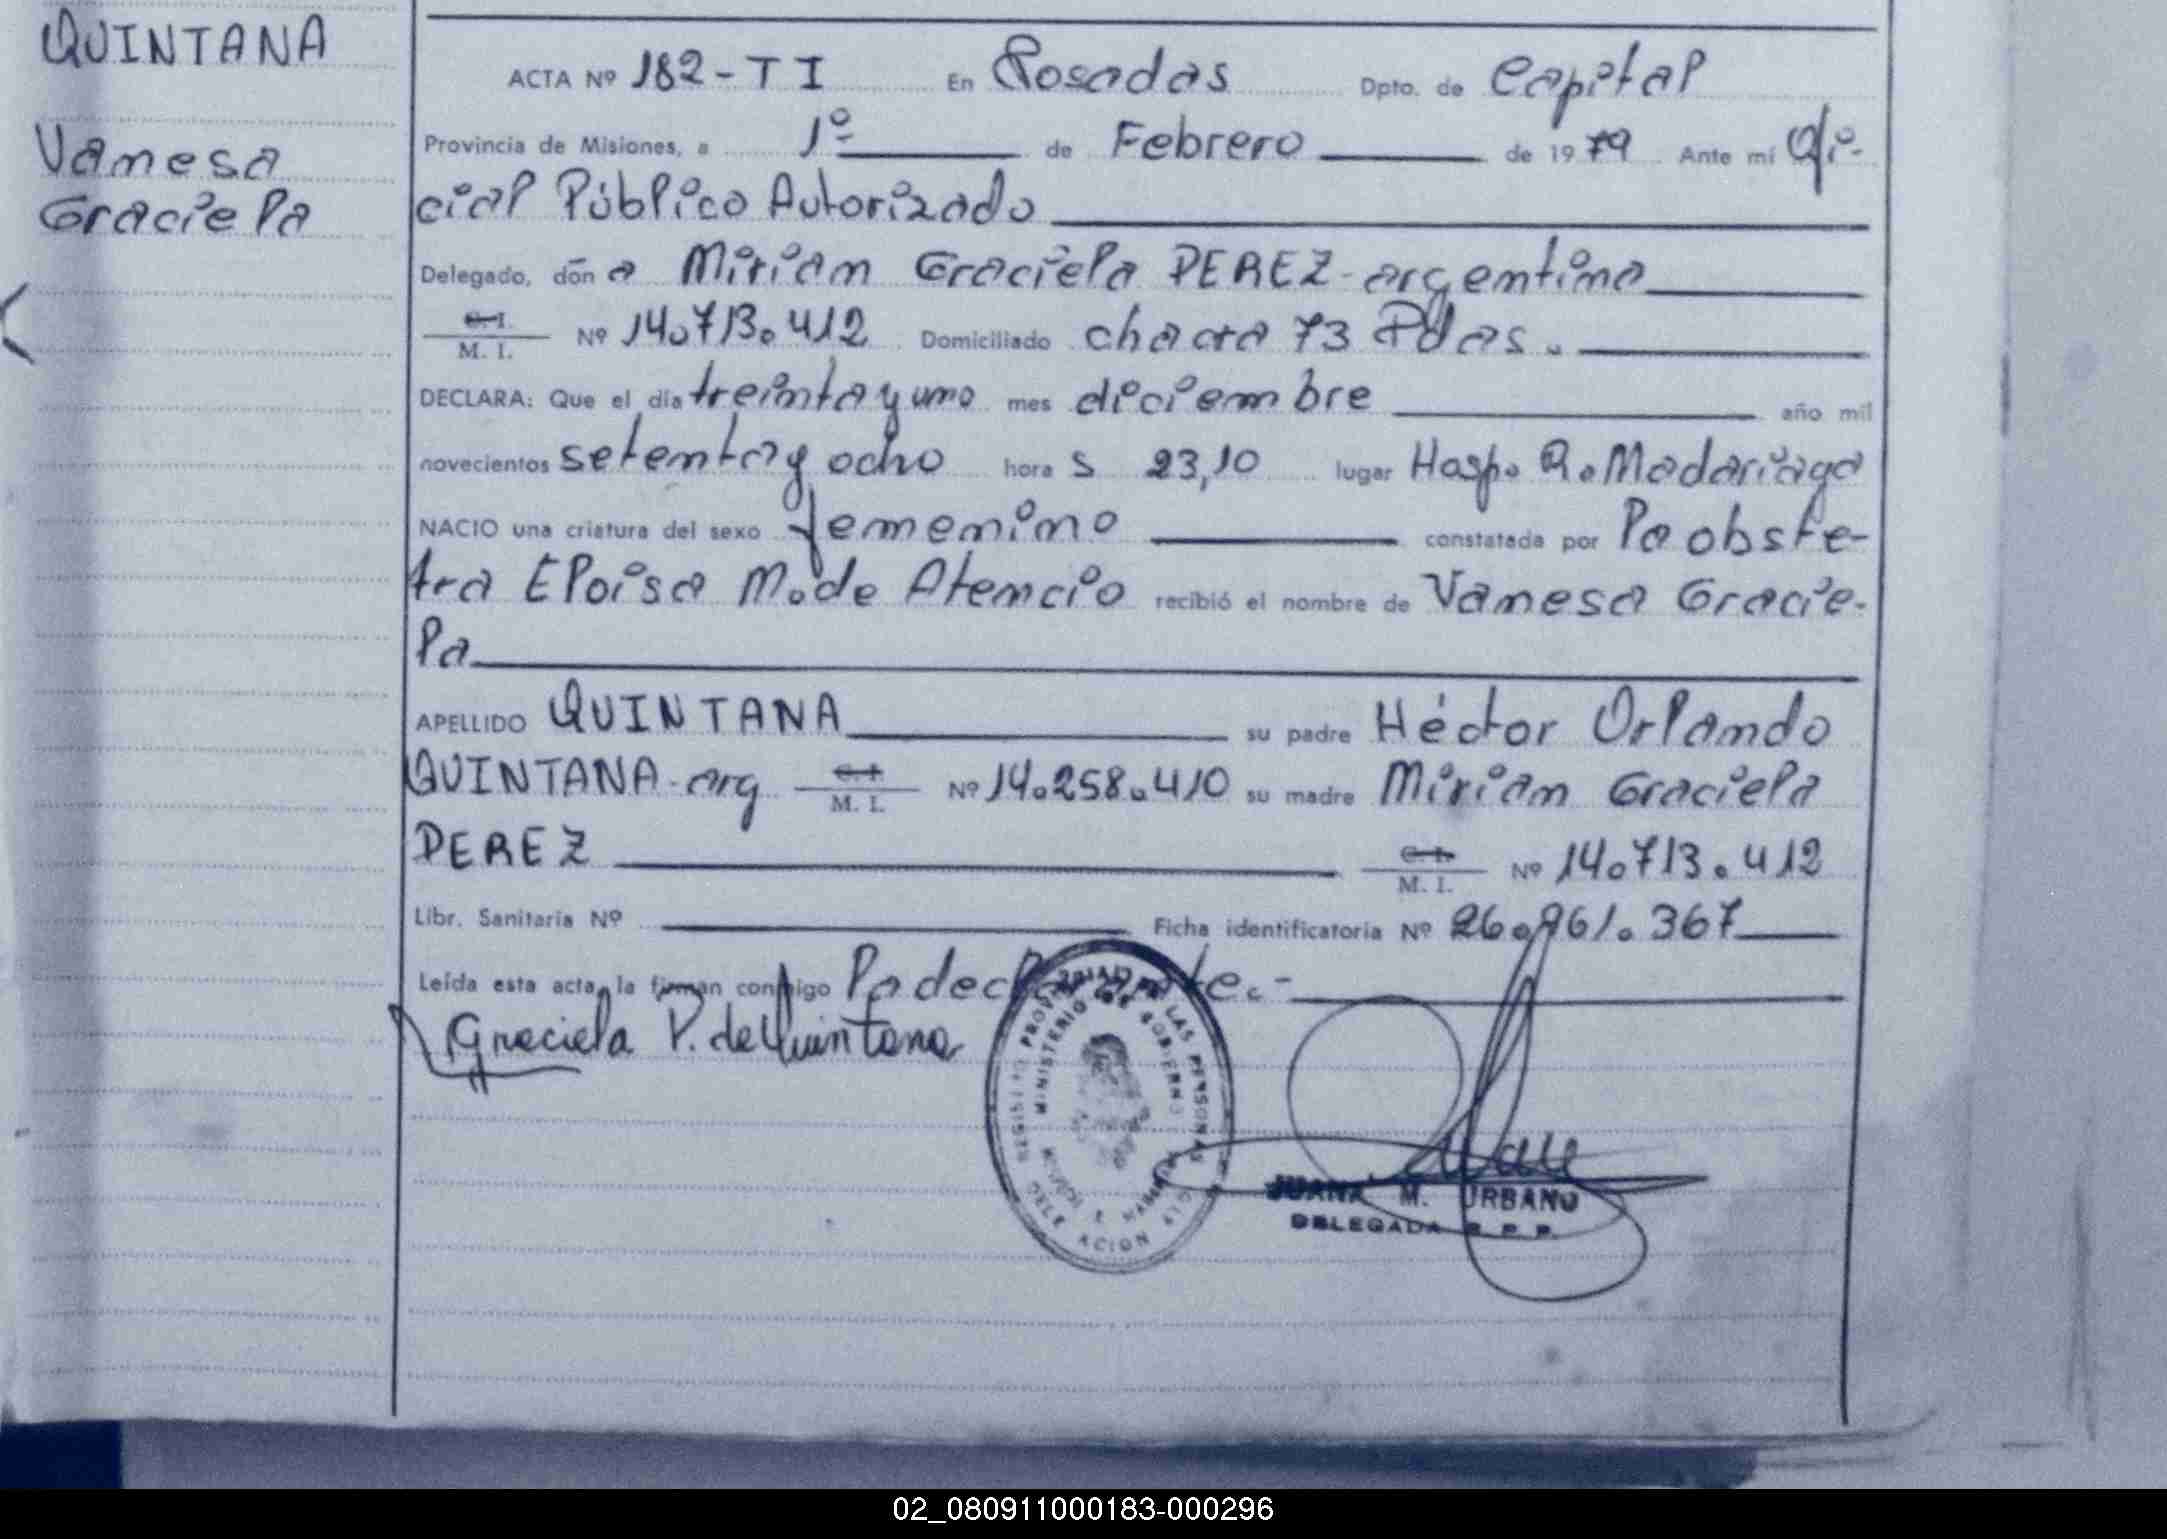 QUINTANA
Vanesa
Graciela
ACTA Nº 182-T I En Posadas Dpto. de Capital
Provincia de Misiones, a 1º de Febrero de 1979 Ante mí Ofi-
cial Público Autorizado
Delegado, don a Miriam Graciela PEREZ-argentina
C. I.
M. I. Nº 14.713.412 Domiciliado chacra 73 Pdas.
DECLARA: Que el día treinta y uno mes diciembre año mil
novecientos setenta y ocho hora s 23,10 lugar Hosp. R. Madariaga
NACIO una criatura del sexo femenino constatada por la obste-
tra Eloisa M. de Atencio recibió el nombre de Vanesa Gracie-
la
APELLIDO QUINTANA su padre Héctor Orlando
QUINTANA-arg C. I. M. I. Nº 14.258.410 su madre Miriam Graciela
PEREZ C. I. M. I. Nº 14.713.412
Libr. Sanitaria Nº Ficha identificatoria Nº 26.961.367
Leída esta acta, la firman conmigo la declarante.-
Graciela P. de Quintana
REGISTRO PROVINCIAL DE LAS PERSONAS
MINISTERIO DE GOBIERNO
DELEGACION
JUANA M. URBANO
DELEGADA R. P. P.
02_080911000183-000296